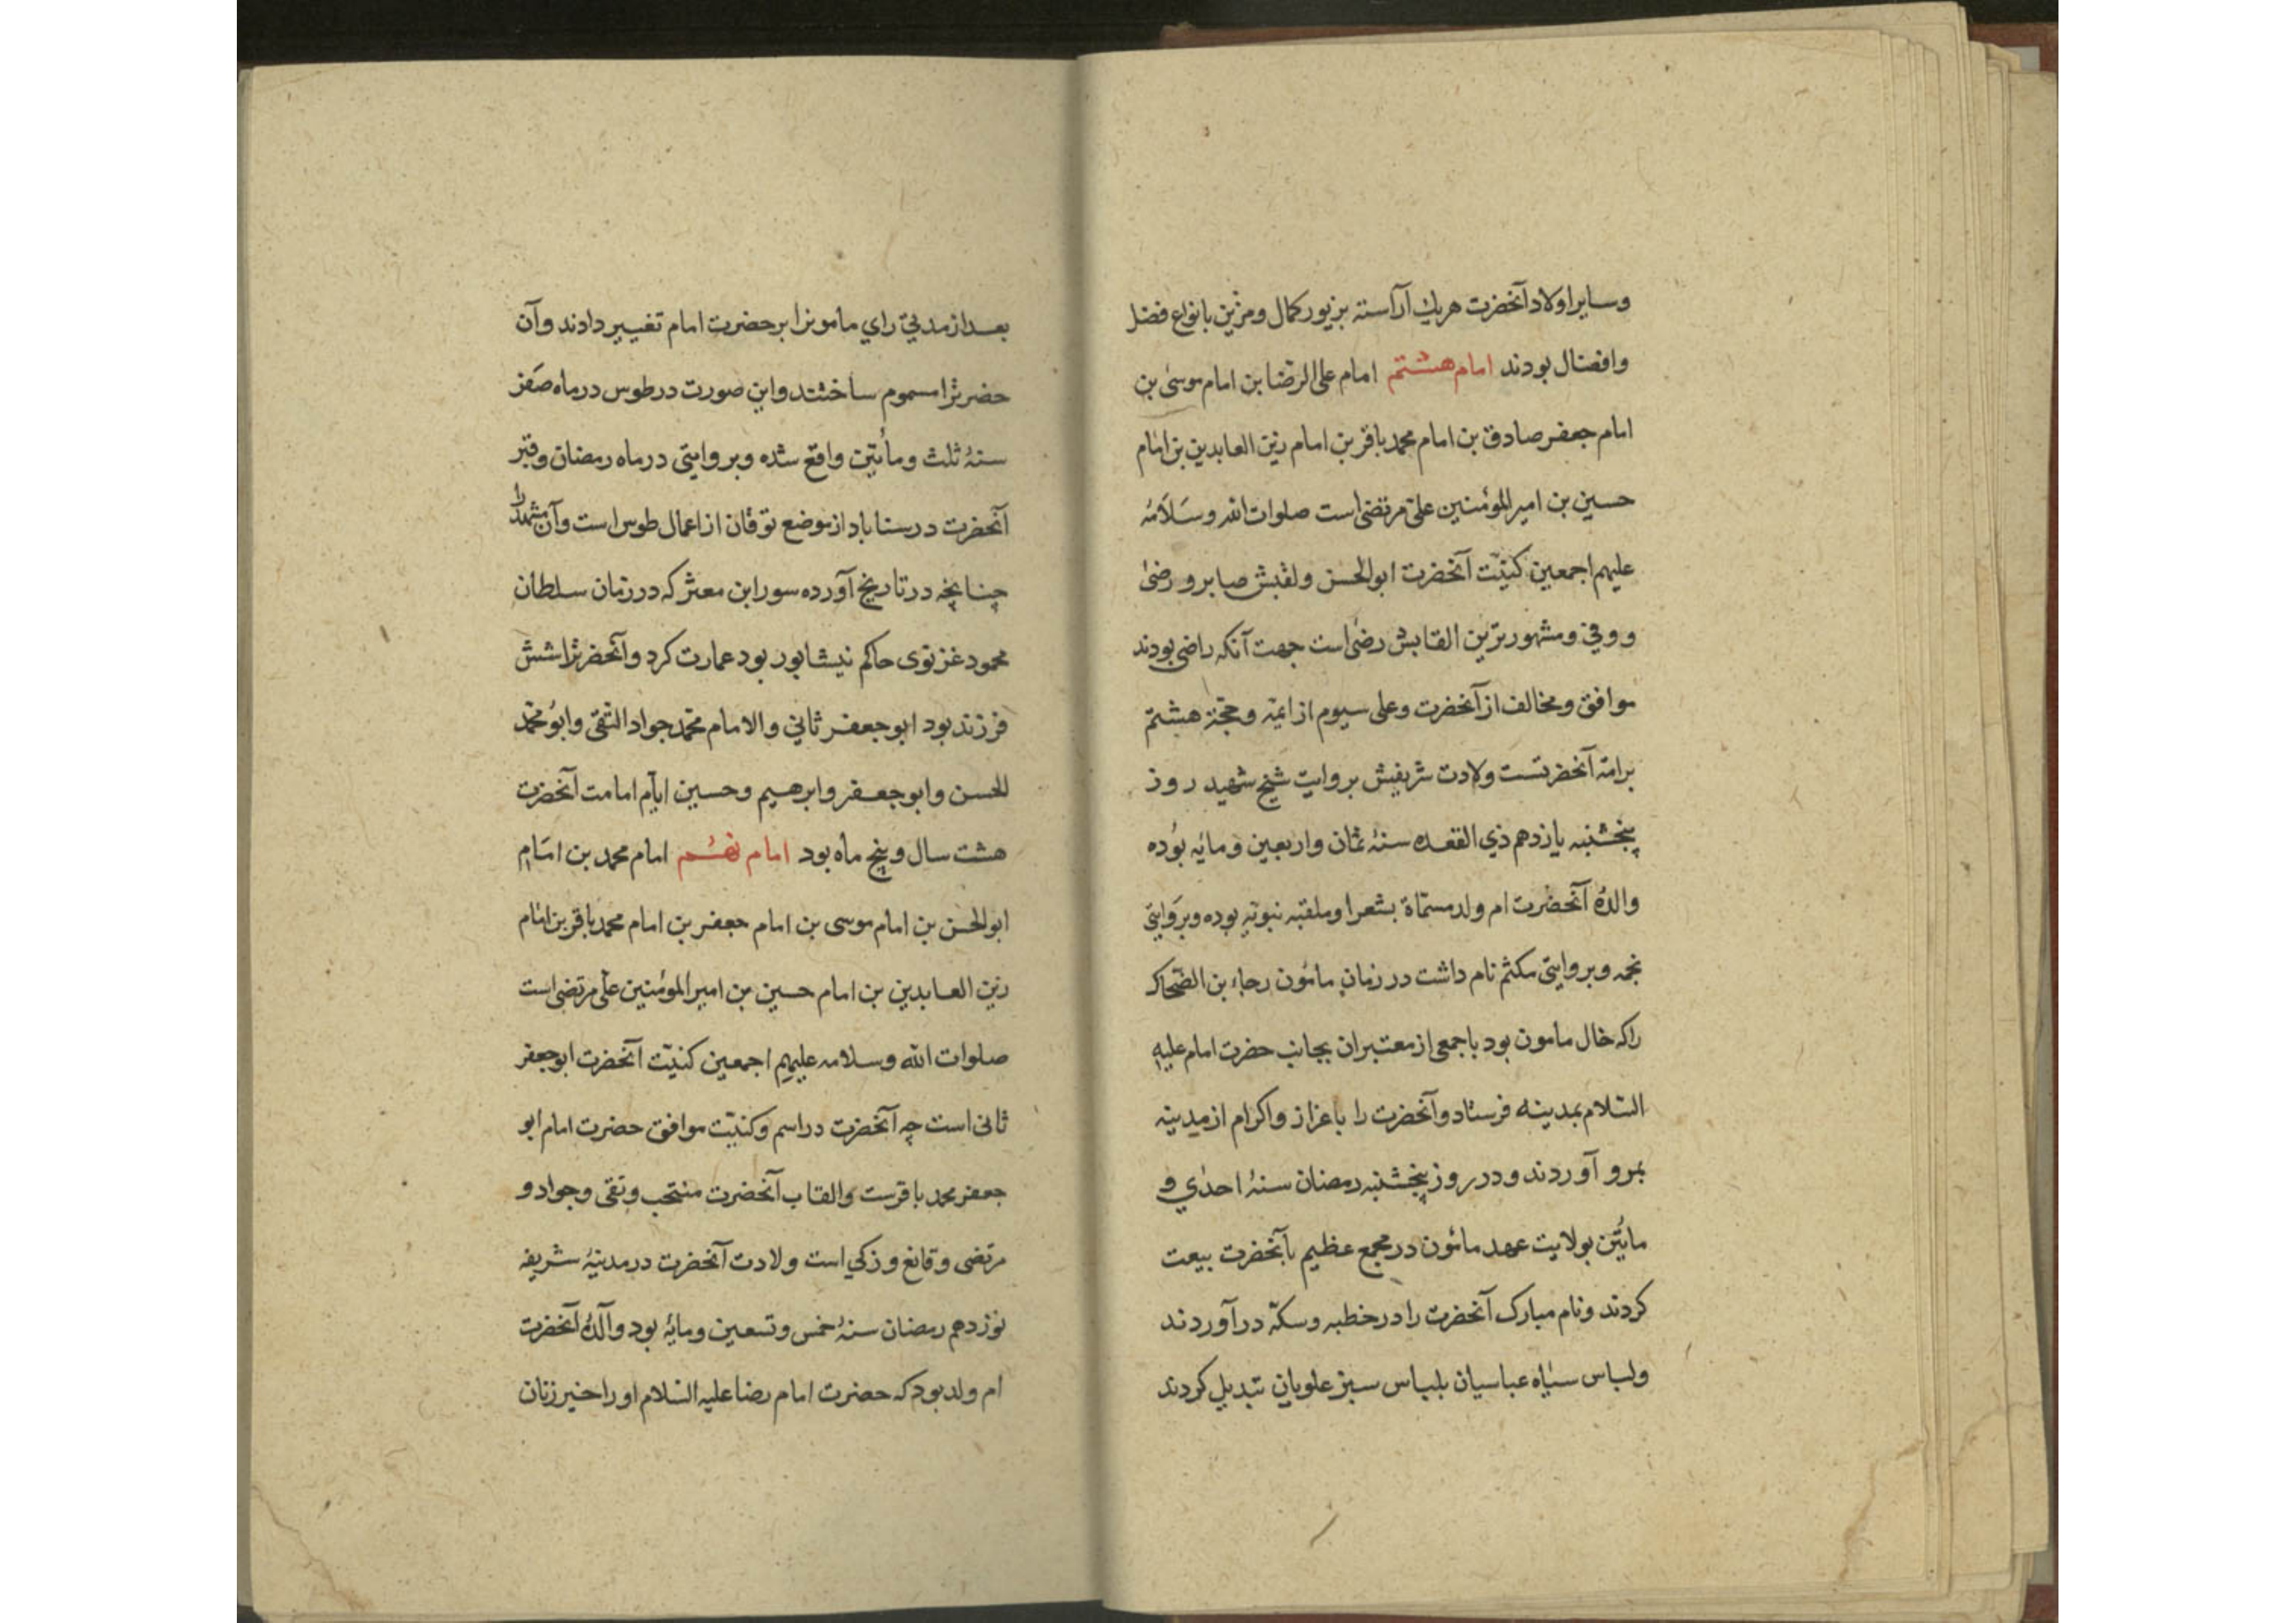 وسایر اولاد آنحضرت هریك آراسته بزیور کمال ومزین بانواع فضل
وافضال بودند امام هشتم امام علی الرضا بن امام موسی بن
امام جعفر صادق بن امام محمد باقر بن امام زین العابدین بن امام
حسین بن امیر المؤمنین علی مرتضی است صلوات الله وسلامه
علیهم اجمعین کنیّت آنحضرت ابوالحسن ولقبش صابر و رضی
و وفی ومشهورترین القابش رضی است جهت آنکه راضی بودند
موافق ومخالف از آنحضرت وعلی سیوم از ایمّه وحجّة هشتم
برامة آنحضرتست ولادت شریفش بروایت شیخ شهید روز
پنجشنبه یازدهم ذی القعده سنهٔ ثمان واربعین ومایه بوده
والدهٔ آنحضرت ام ولد مسمّاة بشعرا وملقبه نبوتیه بوده وبروایتی
نجمه وبروایتی مکثم نام داشت در زمان مائون رجاء بن الضحاک
راکه خال مامون بود باجمعی از معتبران بجانب حضرت امام علیه
السّلام بمدینه فرستاد وآنحضرت را باعزاز واکرام از مدینه
بمرو آوردند ودر روز پنجشنبه رمضان سنهٔ احدی و
مایتین بولایت عهد مائون در مجمع عظیم بآنحضرت بیعت
کردند ونام مبارک آنحضرت را در خطبه وسکّه درآوردند
ولباس سیاه عباسیان بلباس سبز علویان تبدیل کردند
بعد از مدتی رای مامونرا بر حضرت امام تغییر دادند وآن
حضرترا مسموم ساختند واین صورت در طوس در ماه صفر
سنهٔ ثلث ومأتین واقع شده وبروایتی در ماه رمضان وقبر
آنحضرت در سناباد از موضع نوقان از اعمال طوس است وآن مشهد را
چنانچه در تاریخ آورده سور ابن معتز که در زمان سلطان
محمود غزنوی حاکم نیشابور بود عمارت کرد وآنحضرترا شش
فرزند بود ابو جعفر ثانی والامام محمّد جواد التقی وابو محمّد
الحسن وابو جعفر وابرهیم وحسین ایّام امامت آنحضرت
هشت سال وپنج ماه بود امام نهم امام محمد بن امام
ابوالحسن بن امام موسی بن امام جعفر بن امام محمد باقر بن امام
زین العابدین بن امام حسین بن امیر المؤمنین علی مرتضی است
صلوات الله وسلامه علیهم اجمعین کنیّت آنحضرت ابوجعفر
ثانی است چه آنحضرت در اسم وکنیّت موافق حضرت امام ابو
جعفر محمد باقرست والقاب آنحضرت منتجب وتقی وجواد و
مرتضی وقانع وزکی است ولادت آنحضرت در مدینهٔ شریفه
نوزدهم رمضان سنهٔ خمس وتسعین ومایهٔ بود والدهٔ آنحضرت
ام ولد بود که حضرت امام رضا علیه السّلام اورا خیر زنان